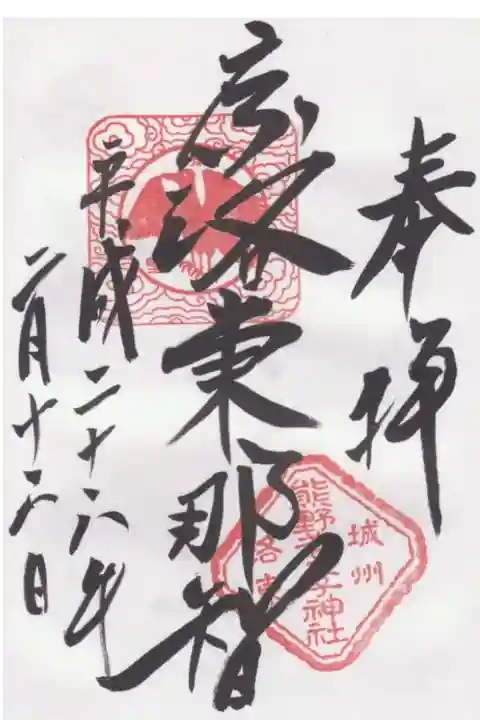 奉拝
京洛東那智
平成二十六年
二月十六日
城州
熊野若王子神社
洛東